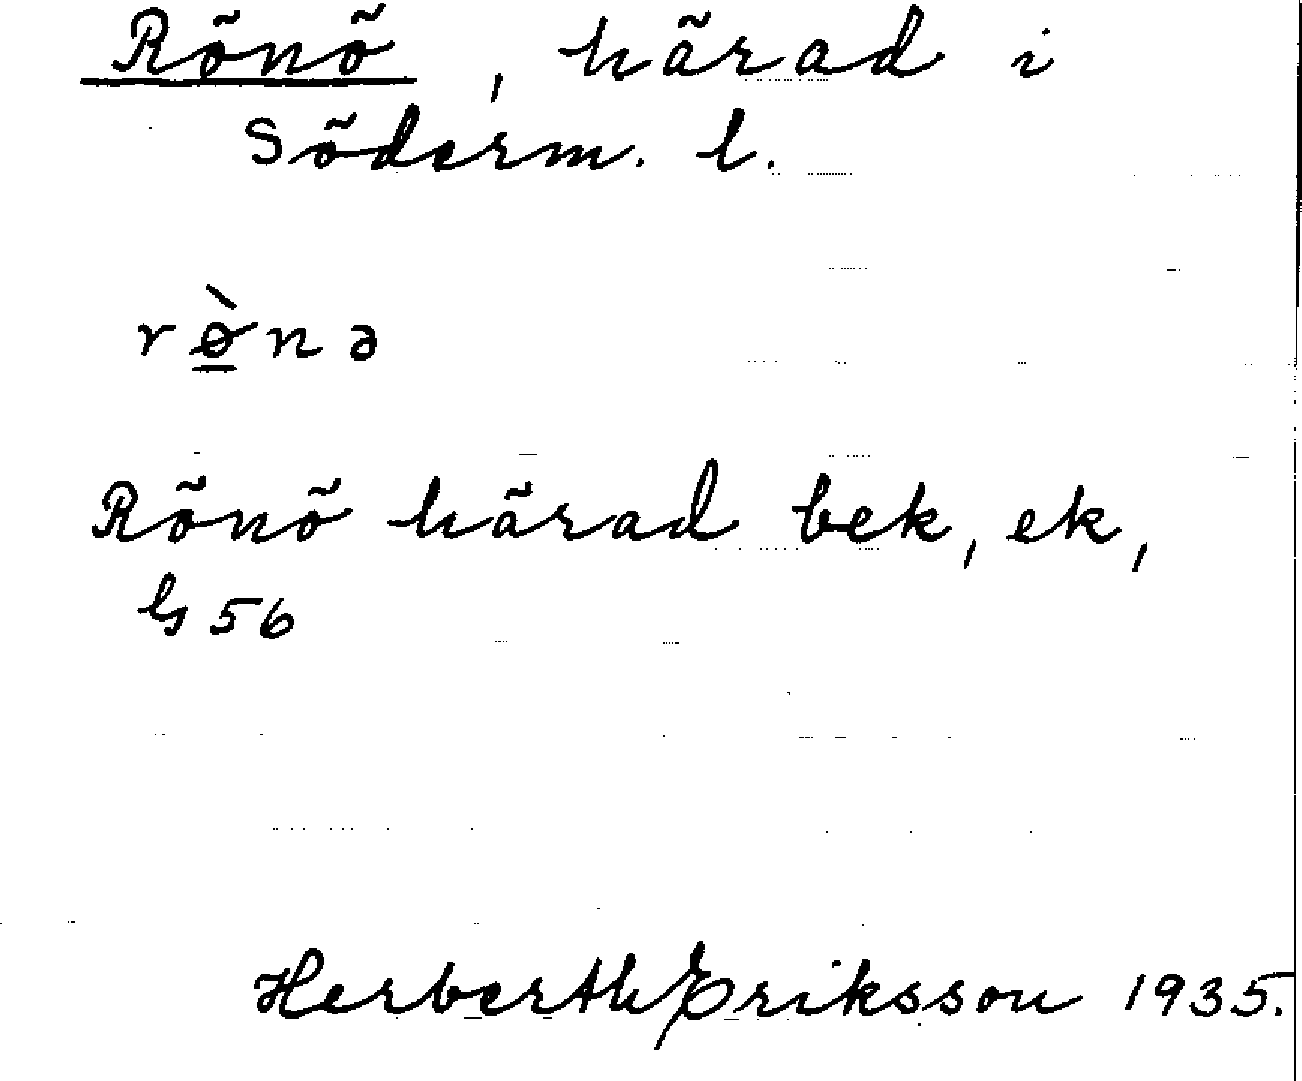 Rönö, härad i
Söderm. l.
rø̀nə
Rönö härad bek, ek,
G 56
Herberth Eriksson 1935.